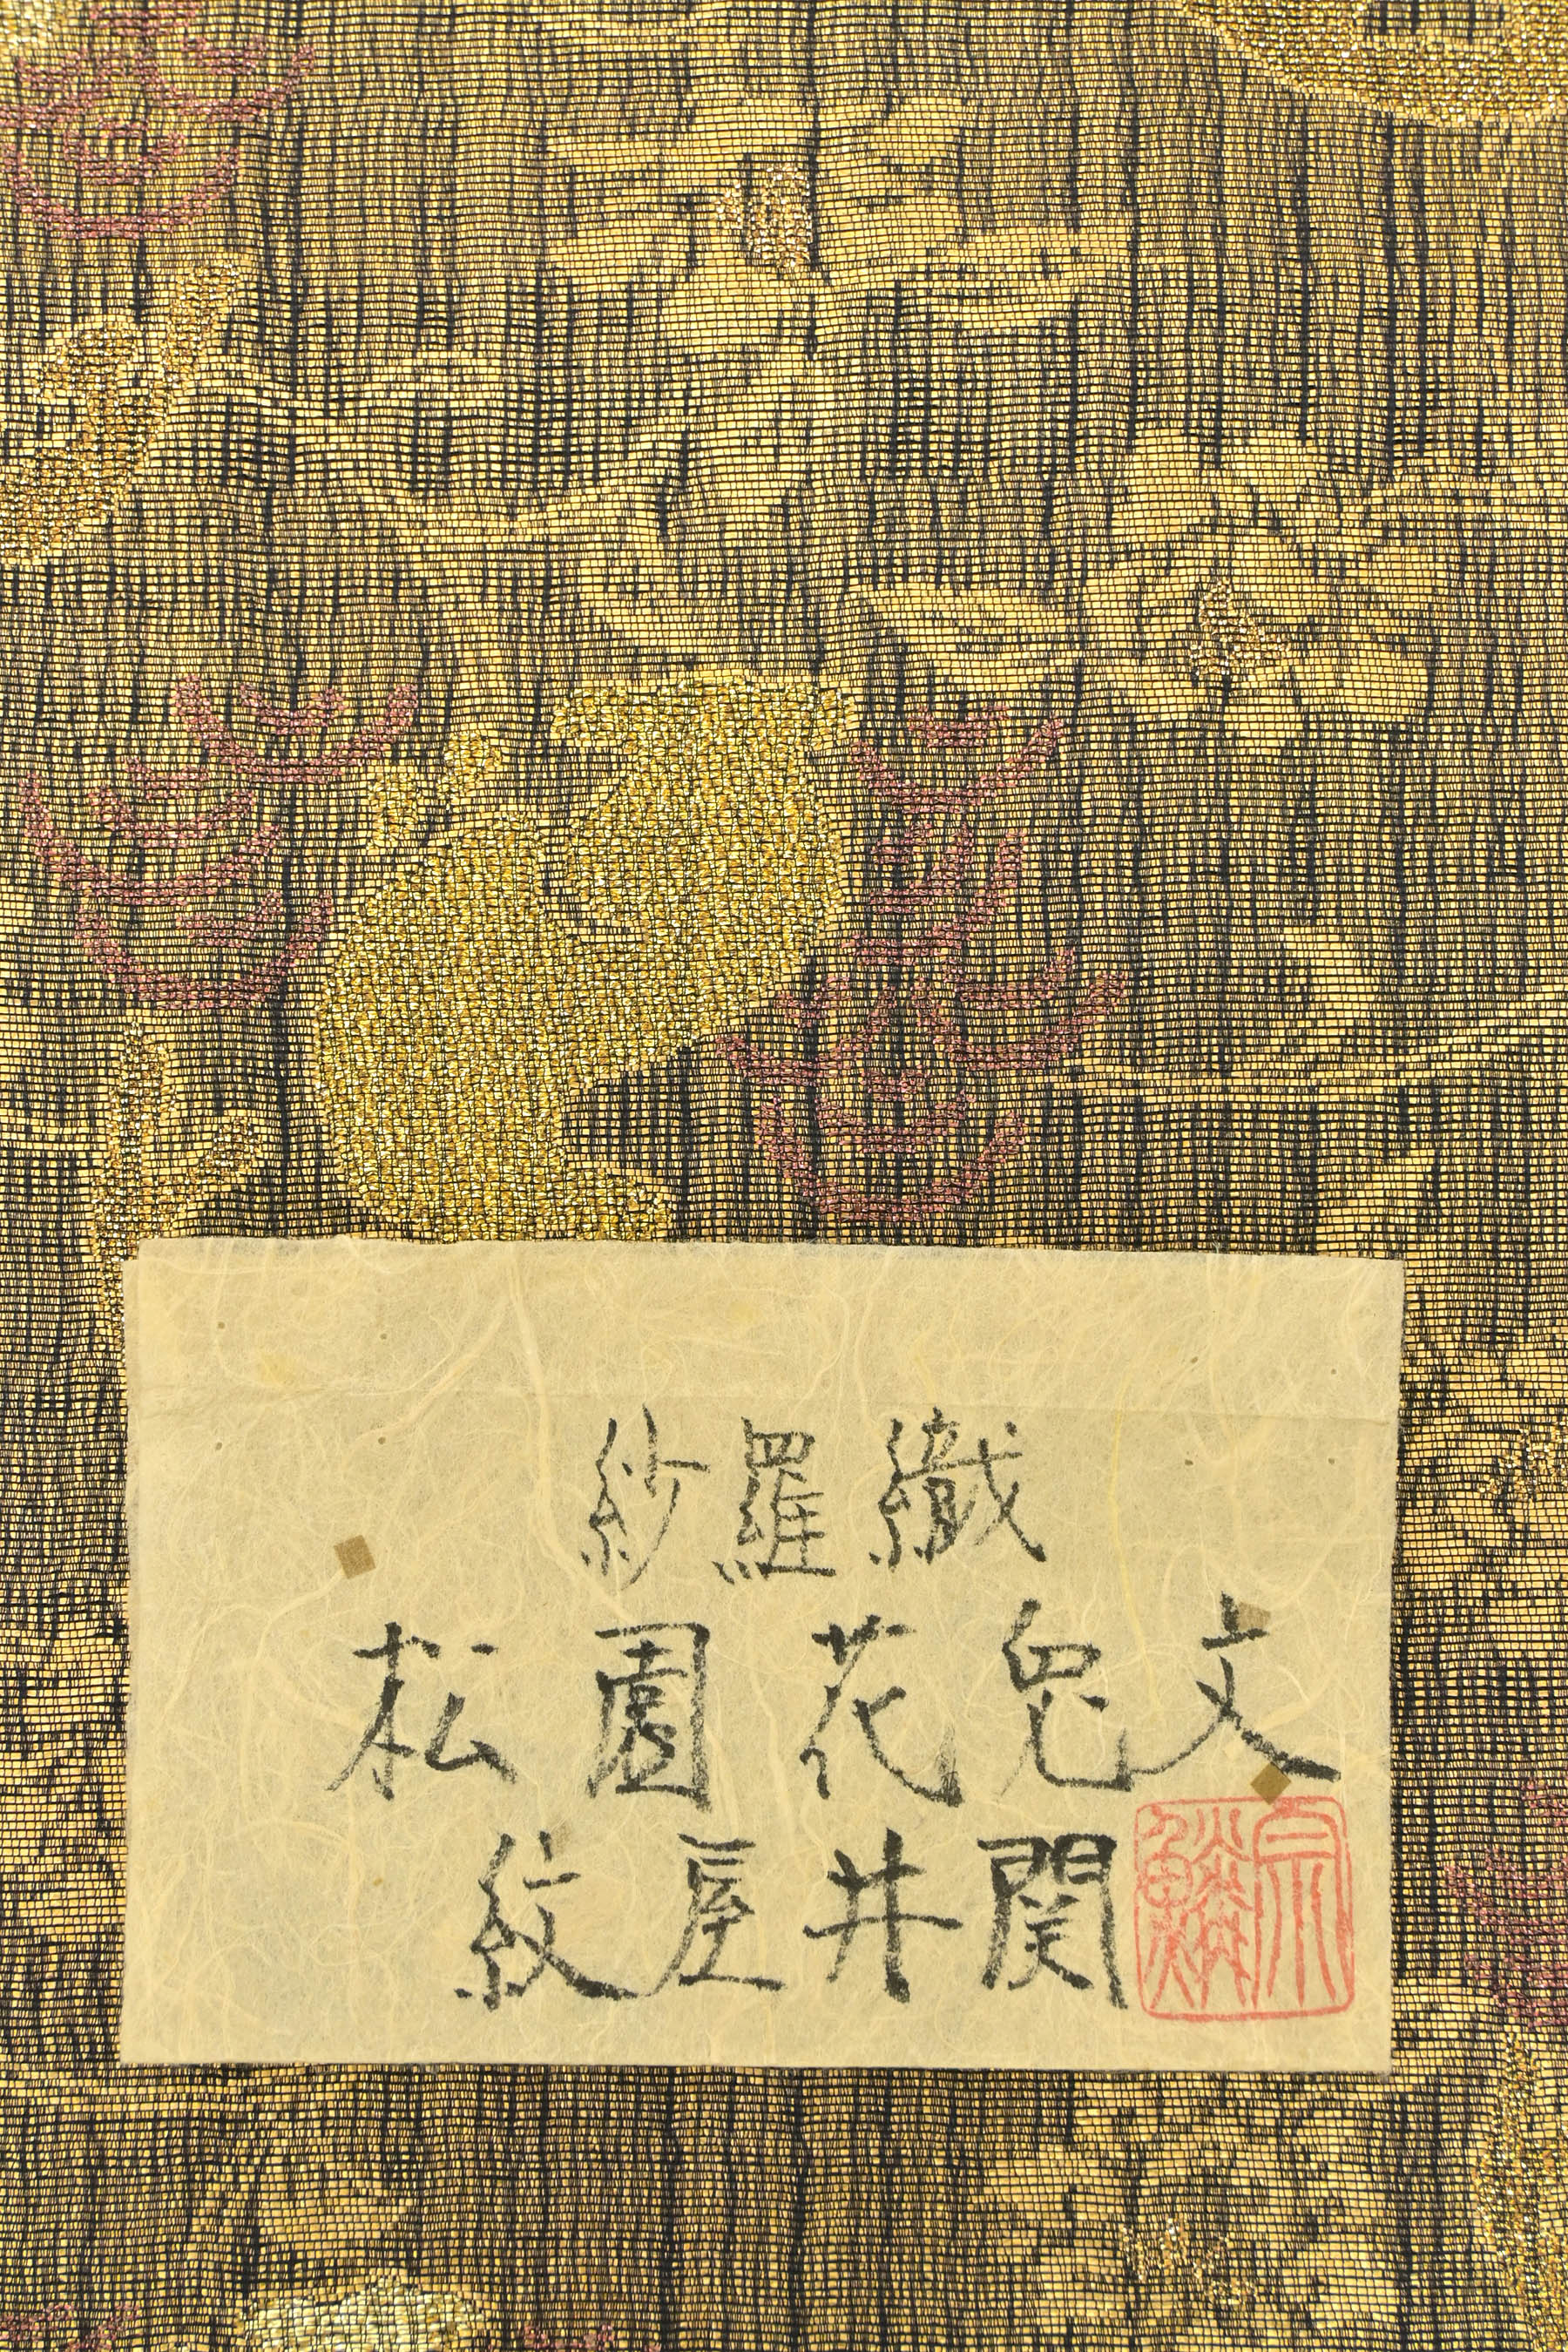 紗羅織
松園花兎文
紋屋井関